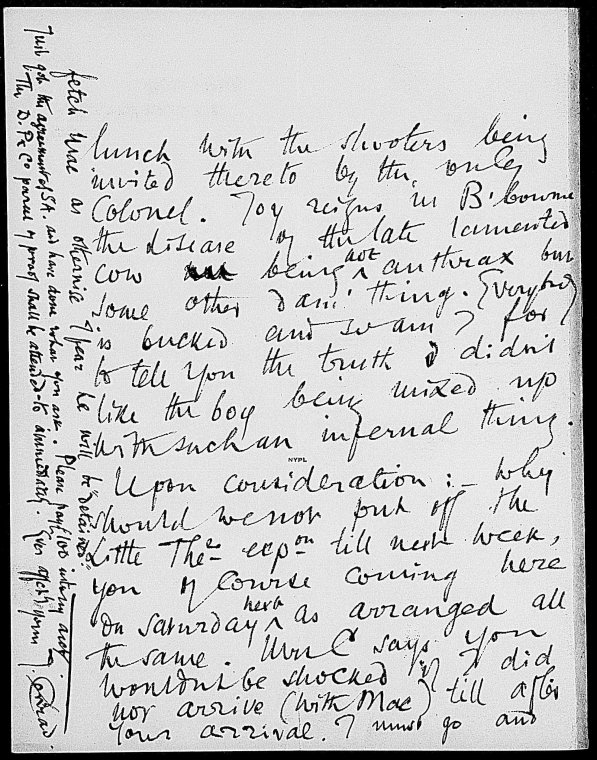 lunch with the shooters being
invited thereto by the only
Colonel. Joy reigns in B'bourne
the disease of the late lamented
cow being not anthrax but
some other dam' thing. Everybody
is bucked and so am I for
to tell you the truth I didn't
like the boy being mixed up
with such an infernal thing.
NYPL
Upon consideration :- why
should we not put off the
Little The^re exp^on till next week,
you of course coming here
on Saturday next as arranged all
the same. Mrs C says you
wouldn't be shocked if I did
not arrive (with Mac) till after
your arrival. I must go and
fetch him as otherwise I fear he will be "detained".
Just got the agreement of S.A. and have done what you ask. Please pay £100 into my acct.
The D. P & Co parcel of proof shall be attended to immediately. Yours affect^ly
Conrad.